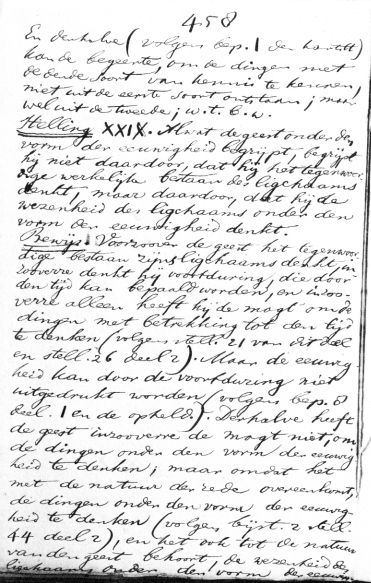 458
En derhalve (volgens bep. 1 der hartstt)
kan de begeerte, om de dingen met
de derde soort van kennis te kennen,
niet uit de eerste soort ontstaan; maar
wel uit de tweede; w.t.b.w.
Stelling XXIX. Al wat de geest onder den
vorm der eeuwigheid begrijpt, begrijpt
hij niet daardoor, dat hij het tegenwoor-
dige werkelijke bestaan des ligchaams
denkt, maar daardoor, dat hij de
wezenheid des ligchaams onder den
vorm der eeuwigheid denkt.
Bewijs. Voorzoover de geest het tegenwoor-
dige bestaan zijns ligchaams denkt, in
zooverre denkt hij voortduring, die door
den tijd kan bepaald worden, en inzoo-
verre alleen heeft hij de magt om de
dingen met betrekking tot den tijd
te denken (volgens stell. 21 van dit deel
en stell. 26 deel 2). Maar de eeuwig-
heid kan door de voortduring niet
uitgedrukt worden (volgens bep. 8
deel 1 en de opheld.). Derhalve heeft
de geest inzooverre de magt niet, om
de dingen onder den vorm der eeuwig-
heid te denken; maar omdat het
met de natuur der rede overeenkomt,
de dingen onder den vorm der eeuwig-
heid te denken (volgens bijst. 2 stell.
44 deel 2), en het ook tot de natuur
van den geest behoort, de wezenheid des
ligchaams onder den vorm der eeuwig-